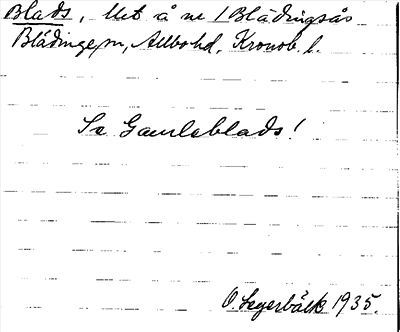 Blads, Ut å nr 1 Blädingsås
Blädinge sn, Allbo hd, Kronob. l.
Se Gamleblads!
O. Segerbäck 1935.